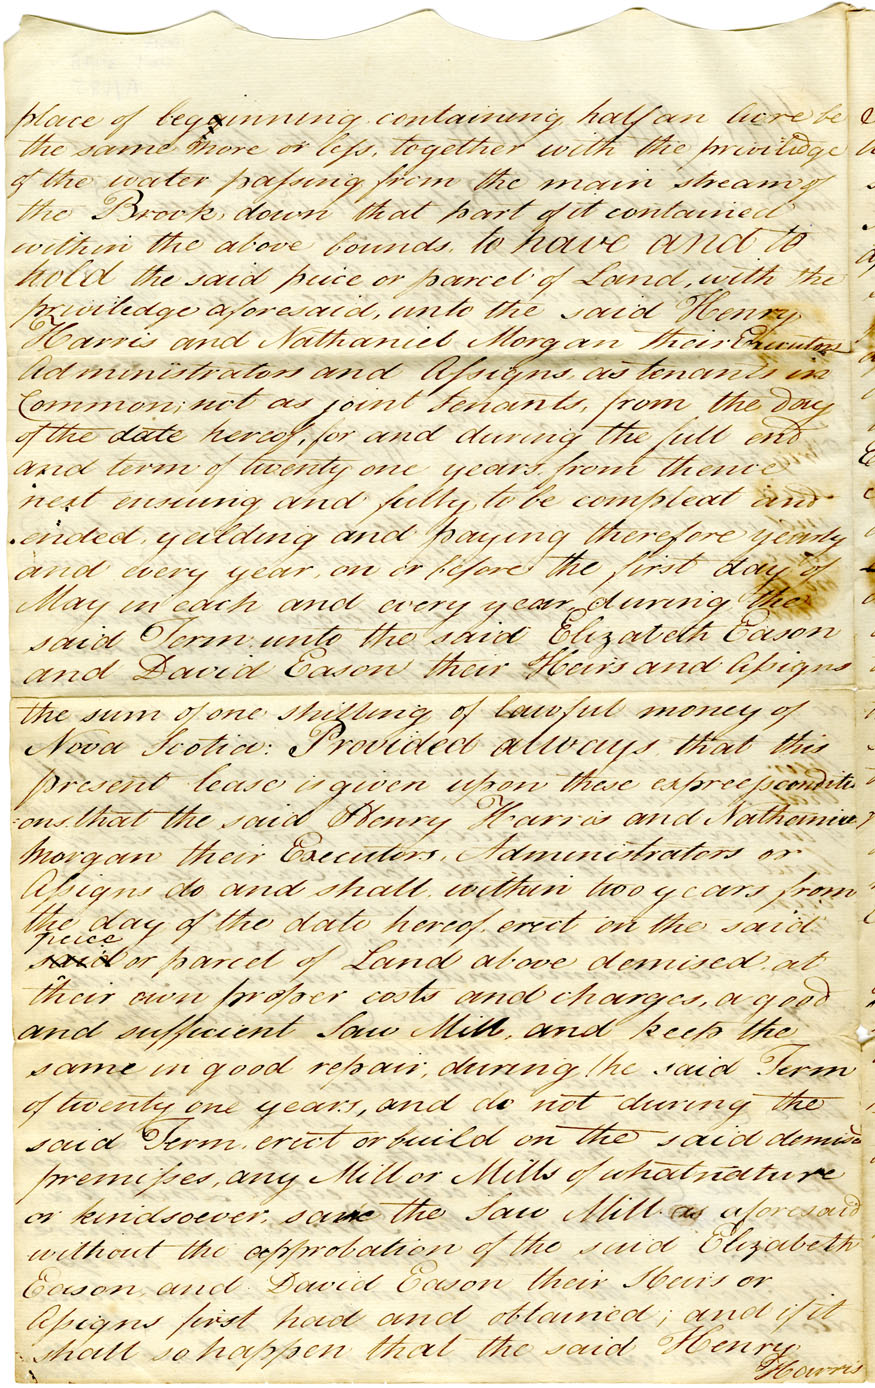 place of beginning containing half an Acre be
the same more or less, together with the priviledge
of the water passing from the main stream of
the Brook down that part of it contained
within the above bounds, to have and to
hold the said peice or parcel of Land, with the
priviledge aforesaid, unto the said Henry
Harris and Nathaniel Morgan their Executors
Administrators and Assigns, as tenants in
Common, not as joint tenants, from the day
of the date hereof, for and during the full end
and term of twenty one years, from thence
next ensuing and fully to be compleat and
ended, yeilding and paying therefore yearly
and every year, on or before the first day of
May in each and every year, during the
said Term unto the said Elizabeth Eason
and David Eason their Heirs and Assigns
the sum of one shilling of lawful money of
Nova Scotia: Provided always that this
present lease is given upon these express conditi
=ons that the said Henry Harris and Nathaniel
Morgan their Executors, Administrators or
Assigns do and shall within two years from
the day of the date hereof erect on the said
peice
said or parcel of Land above demised at
their own proper costs and charges, a good
and sufficient Saw Mill, and keep the
same in good repair, during the said Term
of twenty one years, and do not during the
said Term, erect or build on the said demised
premises, any Mill or Mills of what nature
or kindsoever, save the Saw Mill as aforesaid
without the approbation of the said Elizabeth
Eason and David Eason their Heirs or
Assigns first had and obtained; and if it
shall so happen that the said Henry
Harris